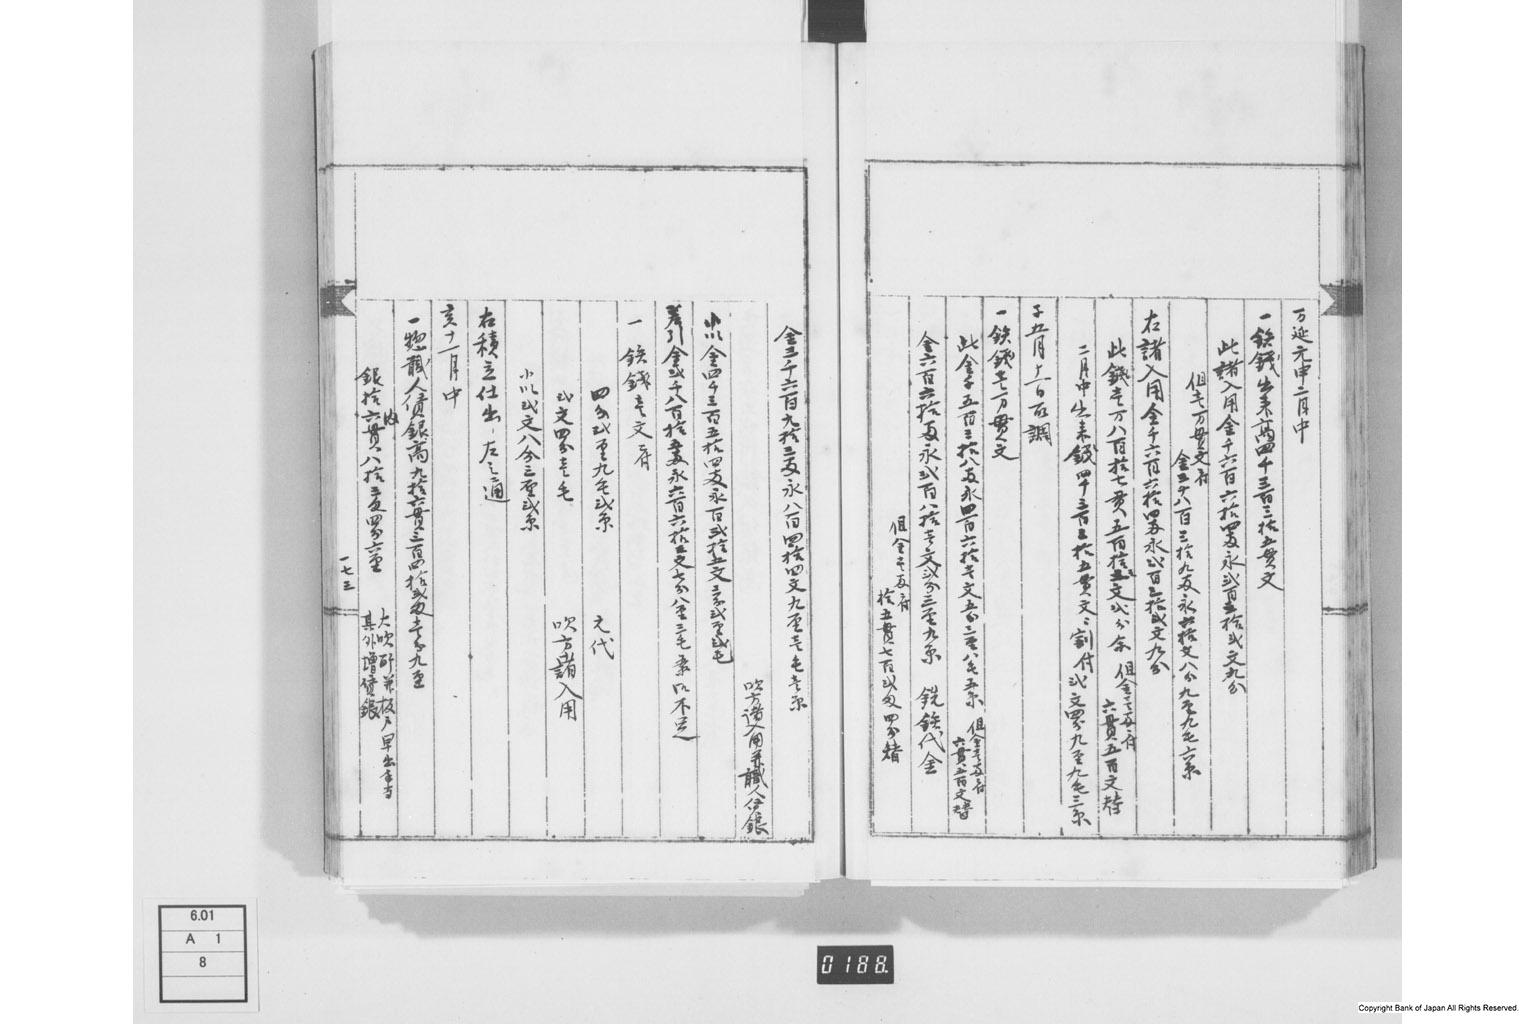 万延元申二月中
一鉄銭出来高四千三百三拾五貫文
此諸入用金千六百六拾四両永弐百五拾弐文九分
但壱万貫文ニ付
金三千八百三拾九両永五拾文八分九厘九毛六糸
右諸入用金千六百六拾四両永弐百五拾弐文九分
此銭壱万八百拾七貫五百拾文弐分余
但金壱両ニ付
六貫五百文替
二月中出来銭四千三百三拾五貫文ニ割付弐文四分九厘九毛三糸
子五月
一鉄銭壱万貫文
此金千五百三拾八両永四百六拾壱文五分三厘八毛五糸
但金壱両ニ付
六貫五百文替
金六百六拾両永弐百八拾壱文弐分三厘九糸 銑鉄代金
但金壱両ニ付
拾五貫七百弐匁四分替
金三千六百九拾三両永八百四拾四文九厘壱毛壱糸
吹方諸入用并職人俸銀
小以金四千三百五拾四両永百弐拾五文三分弐厘弐毛
差引金弐千八百拾五両永六百六拾三文七分八厘三毛余以不足
一鉄銭壱文ニ付
四分弐厘九毛弐糸 元代
弐文四分壱毛 吹方諸入用
小以弐文八分三厘弐糸
右積立仕出し左之通
亥十一月中
一惣職人債銀高九拾六貫三百四拾弐匁壱分九厘
内
銀拾六貫八拾三匁四分六厘
大吹所并板戸早出手当
其外増債銀
一七三
6.01
A 1
8
0188.
Copyright Bank of Japan All Rights Reserved.